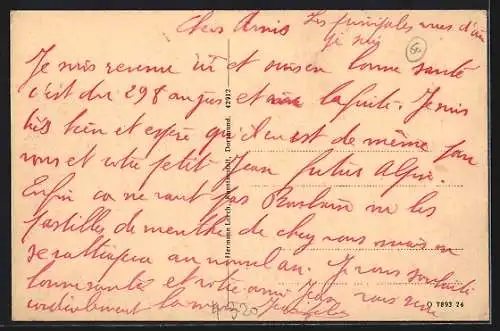 Chers Amis Les principales rues d'où
je suis
Je suis revenu ici et suis en bonne santé
c'est du 298 au jus et la fuite. Je suis
très bien et espère qu'il en est de même pour
vous et votre petit Jean futur Alpin.
Enfin ça ne vaut pas ni les
pastilles de menthe de chez vous mais on
se rattrapera au nouvel an. Je vous souhaite
bonne santé et votre ami Jean vous serre
cordialement la main
Hermann Lorch, Kunstanstalt, Dortmund. 42912
O 7893 26